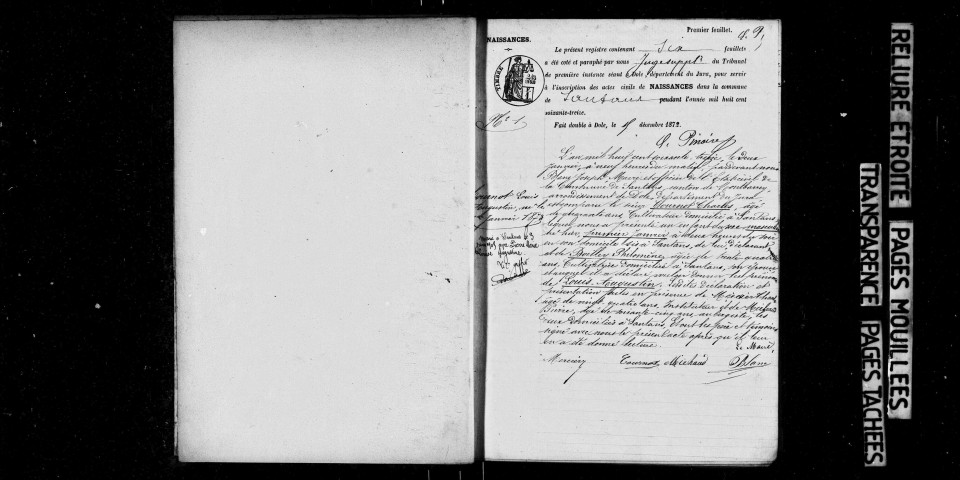 Premier feuillet.
NAISSANCES.
Le présent registre contenant six feuillets
a été coté et paraphé par nous Juge suppt du Tribunal
de première instance séant à Dole, département du Jura, pour servir
à l'inscription des actes civils de NAISSANCES dans la commune
de Santans pendant l'année mil huit cent
soixante-treize.
Fait double à Dole, le décembre 1872.
TIMBRE
No 1
L'an mil huit cent soixante treize, le deux
janvier, à neuf heures du matin, pardevant nous
Blanc Joseph, Maire et officier de l'État civil de
la Commune de Santans, canton de Montbarrey
arrondissement de Dole, département du Jura
est comparu le sieur Tournot Charles, âgé
de cinquante ans, Cultivateur domicilié à Santans
lequel nous a présenté un enfant du sexe masculin
né hier, premier janvier à heures du soir
en son domicile sis à Santans, de lui déclarant
et de Philomène, âgée de trente quatre
ans, domiciliée à Santans, son épouse
et auquel il a déclaré vouloir donner les prénoms
de Louis Augustin. Lesdites déclaration et
présentation faites en présence de
âgé de vingt quatre ans, Instituteur, et de
Pierre, âgé de cinq ans, les
deux domiciliés à Santans, et ont les père et témoins
signé avec nous le présent acte après qu'il leur
en a été donné lecture.
Le Maire,
Tournot Louis
Augustin, né le
1er janvier 1873
Mercier Tournot Michaud Blanc
RELIURE ETROITE
PAGES MOUILLEES
TRANSPARENCE
PAGES TACHEES